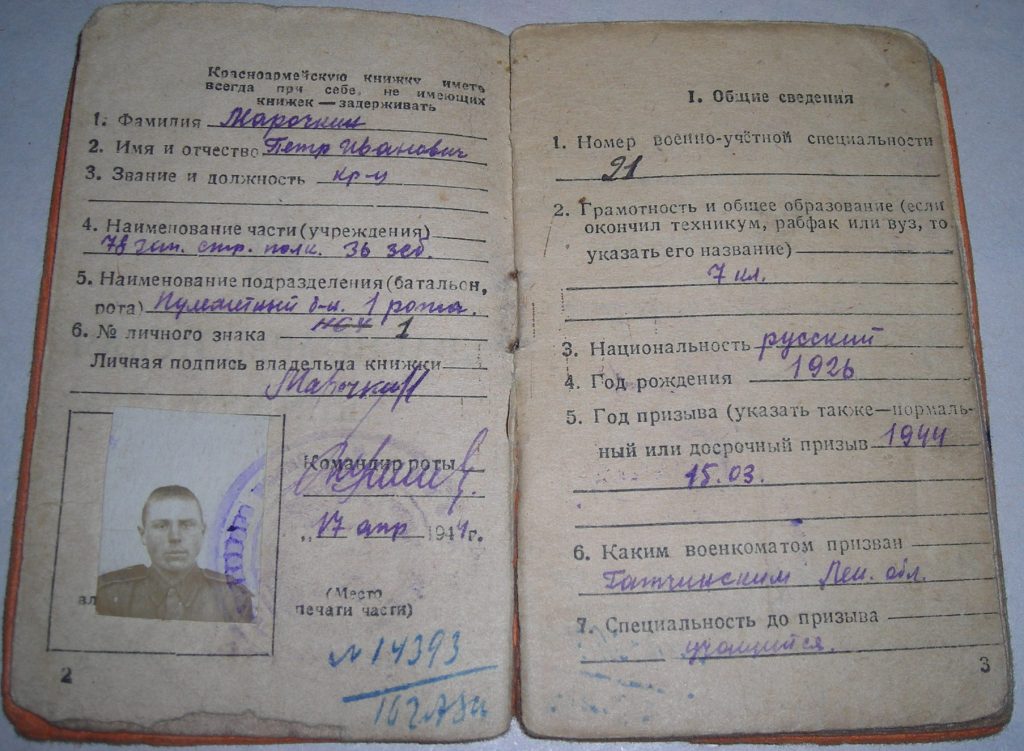 Красноармейскую книжку иметь
всегда при себе, не имеющих
книжек — задерживать
1. Фамилия Марочкин
2. Имя и отчество Петр Иванович
3. Звание и должность кр-ц
4. Наименование части (учреждения)
78 зап. стр. полк. 36 зсд.
5. Наименование подразделения (батальон,
рота) Пулеметный б-н. 1 рота.
6. № личного знака 1
Личная подпись владельца книжки
Марочкин
Командир роты
„17 апр 1944г.
(Место
печати части)
вл
№ 14393
2
I. Общие сведения
1. Номер военно-учётной специальности
21
2. Грамотность и общее образование (если
окончил техникум, рабфак или вуз, то
указать его название)
7 кл.
3. Национальность русский
4. Год рождения 1926
5. Год призыва (указать также—нормаль-
ный или досрочный призыв 1944
15.03.
6. Каким военкоматом призван
Гатчинским Лен. обл.
7. Специальность до призыва
учащийся.
3